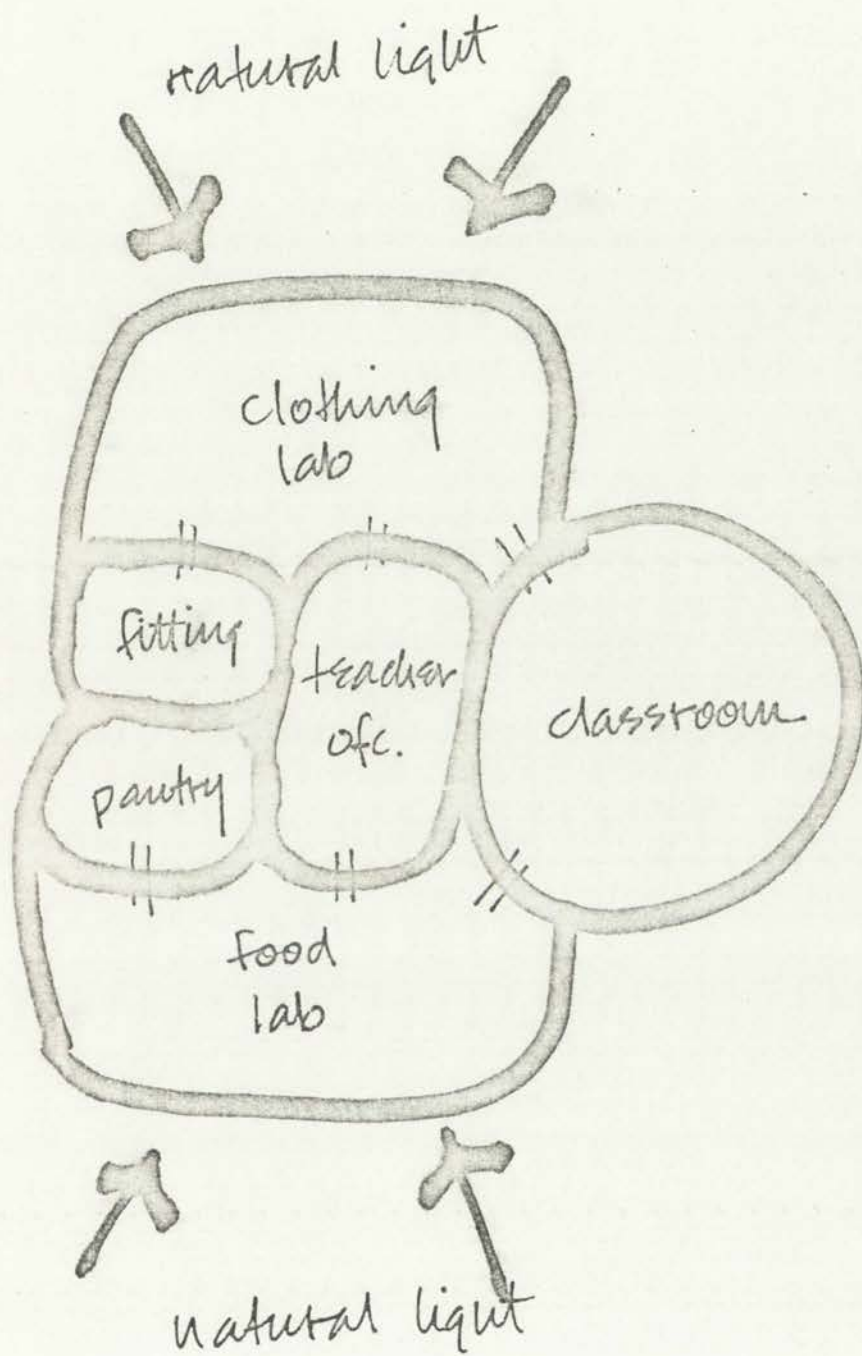 natural light
clothing
lab
fitting
teacher
ofc.
classroom
pantry
food
lab
natural light